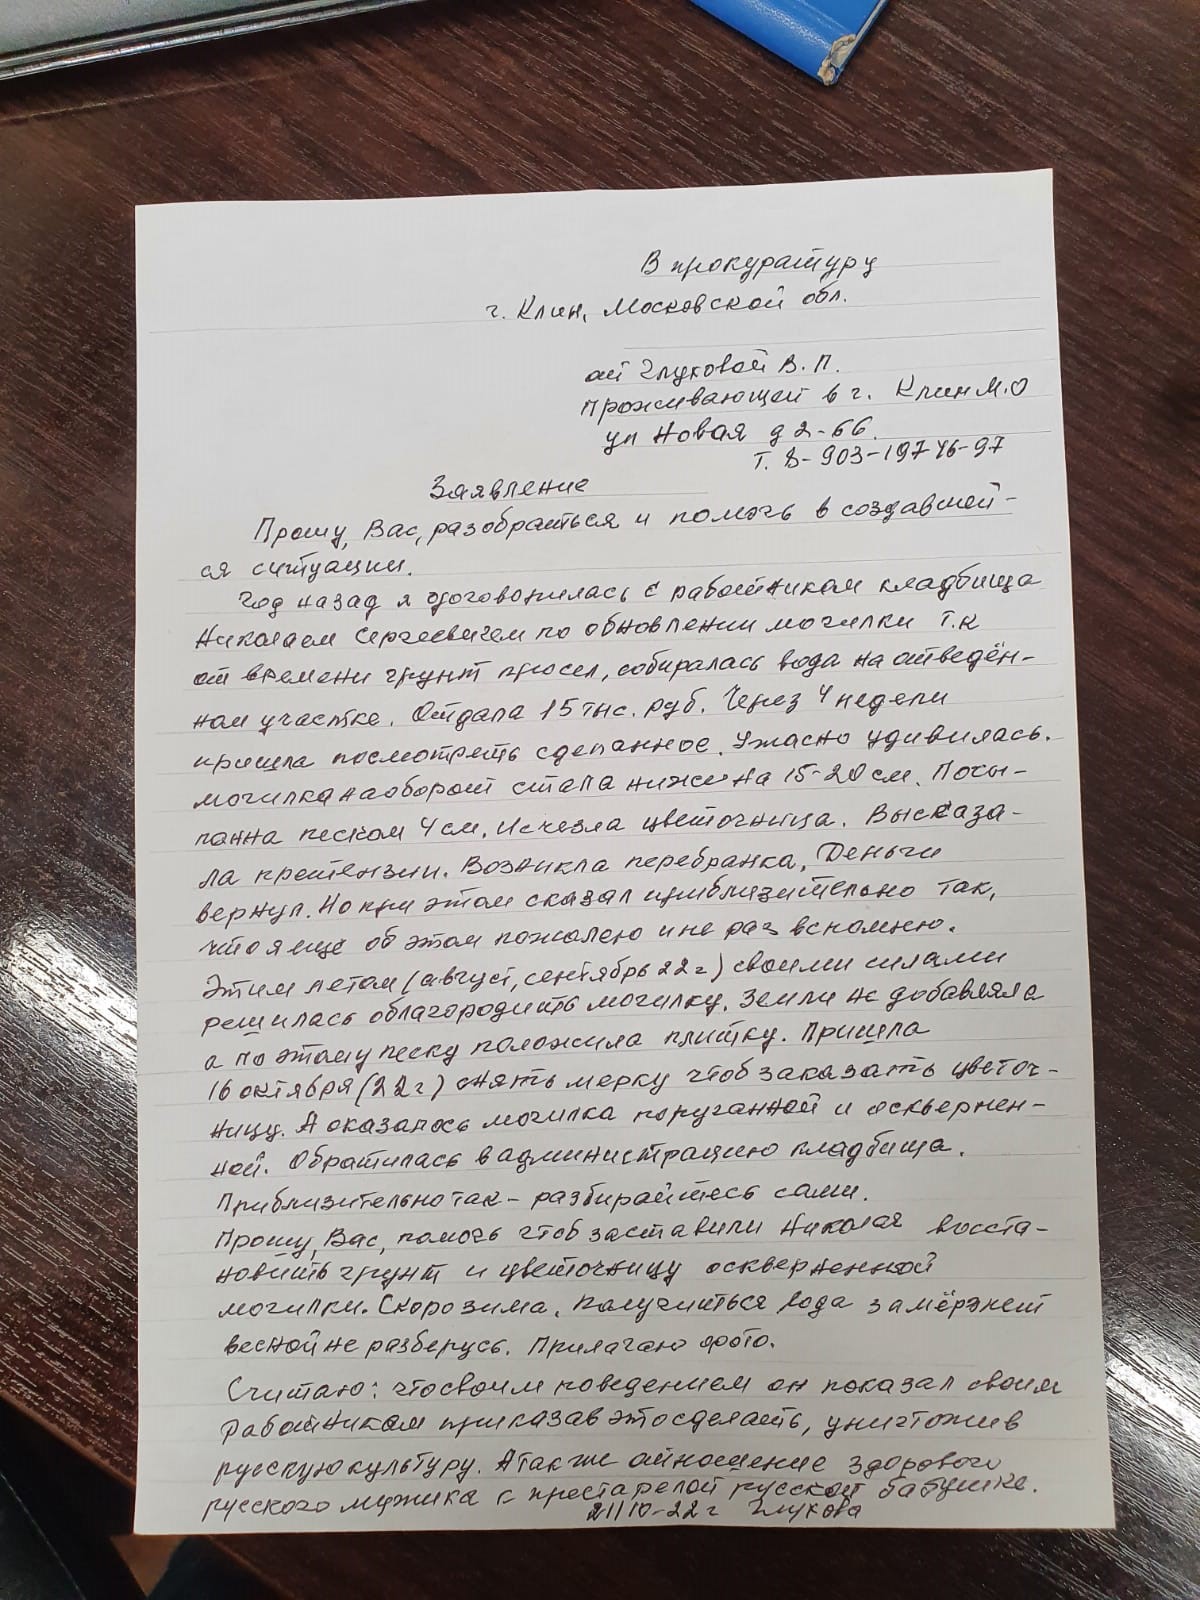 В прокуратуру
г. Клин, Московской обл.
от Глуховой В.П.
Проживающей в г. Клин М.О
ул Новая д 2-66.
Т. 8-903-197 46-97
Заявление
Прошу, Вас, разобраться и помочь в создавшей-
ся ситуации.
Год назад я договорилась с работником кладбища
Николаем Сергеевичем по обновлении могилки т.к
от времени грунт просел, собиралась вода на отведён-
ном участке. Отдала 15 тыс. руб. Через 4 недели
пришла посмотреть сделанное. Ужасно удивилась.
могилка наоборот стала ниже на 15-20 см. Посы-
панна песком 4 см. Исчезла цветочница. Высказа-
ла претензии. Возникла перебранка. Деньги
вернул. Но при этом сказал приблизительно так,
что я еще об этом пожалею и не раз вспомню.
Этим летом (август, сентябрь 22 г) своими силами
решилась облагородить могилку. Земли не добавляла
а по этому песку положила плитку. Пришла
16 октября (22 г) снять мерку чтоб заказать цветоч-
ницу. А оказалось могилка поруганной и осквернен-
ной. Обратилась в администрацию кладбища.
Приблизительно так - разбирайтесь сами.
Прошу, Вас, помочь чтоб заставили Николая восста-
новить грунт и цветочницу оскверненной
могилки. Скоро зима. Получиться вода замёрзнет
весной не разберусь. Прилагаю фото.
Считаю: что своим поведением он показал своим
работникам приказав это сделать, уничтожив
русскую культуру. А также отношение здорового
русского мужика с престарелой русской бабушке.
21/10-22 г Глухова